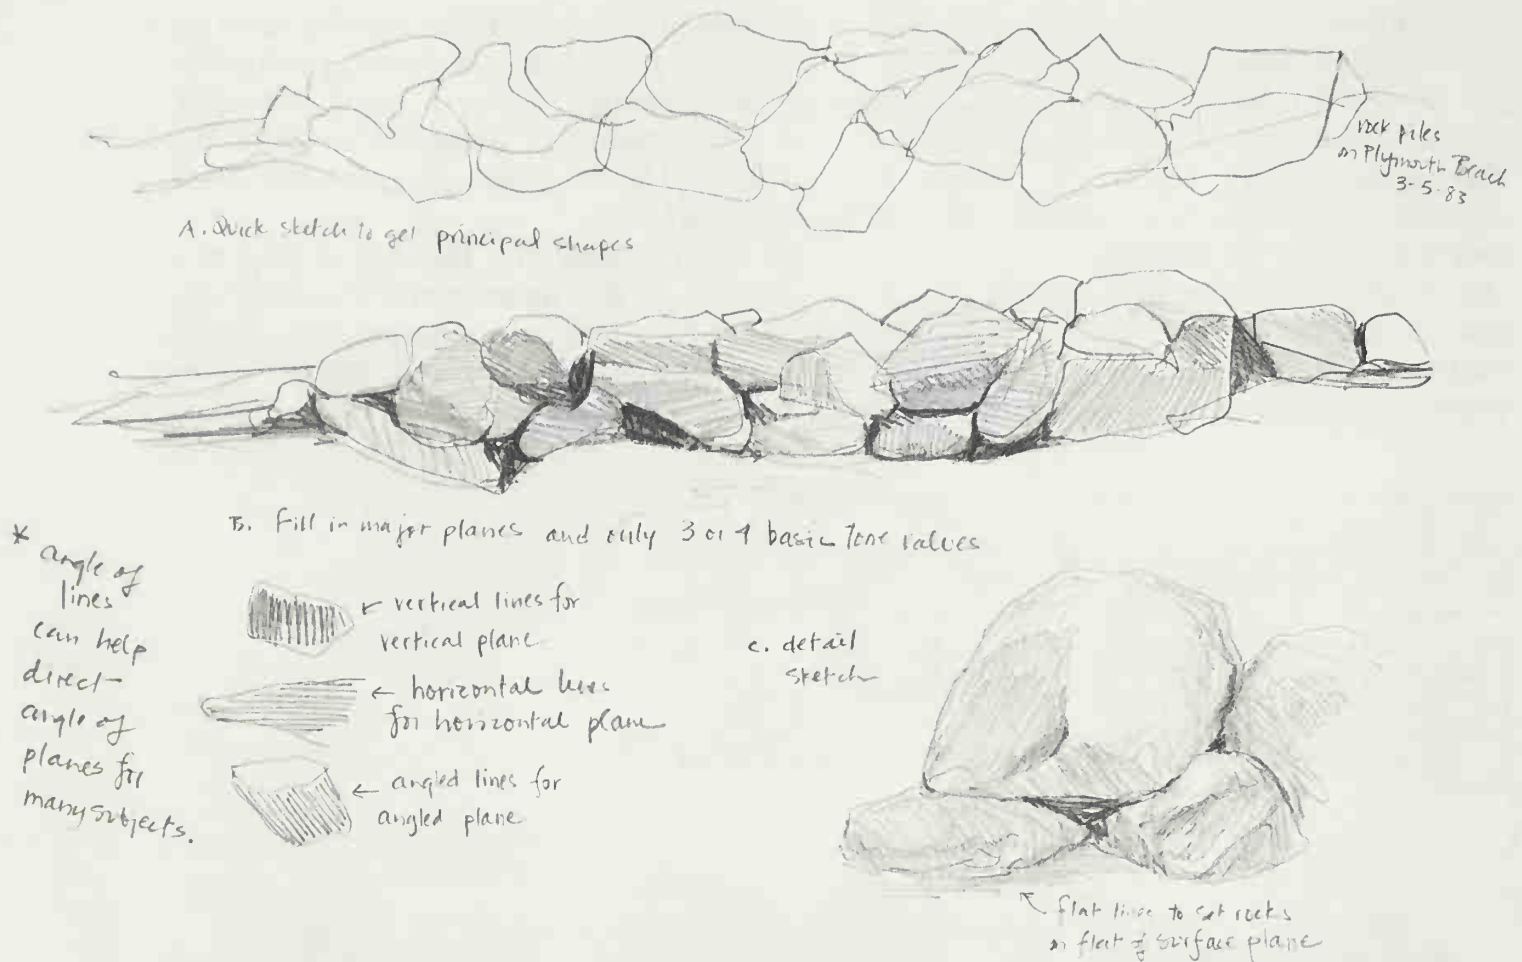 rock piles
on Plymouth Beach
3-5-83
A. Quick sketch to get principal shapes
B. Fill in major planes and only 3 or 4 basic tone values
* angle of
lines
can help
direct
angle of
planes for
many subjects.
← vertical lines for
vertical plane
← horizontal lines
for horizontal plane
← angled lines for
angled plane
c. detail
sketch
flat lines to set rocks
on flat of surface plane